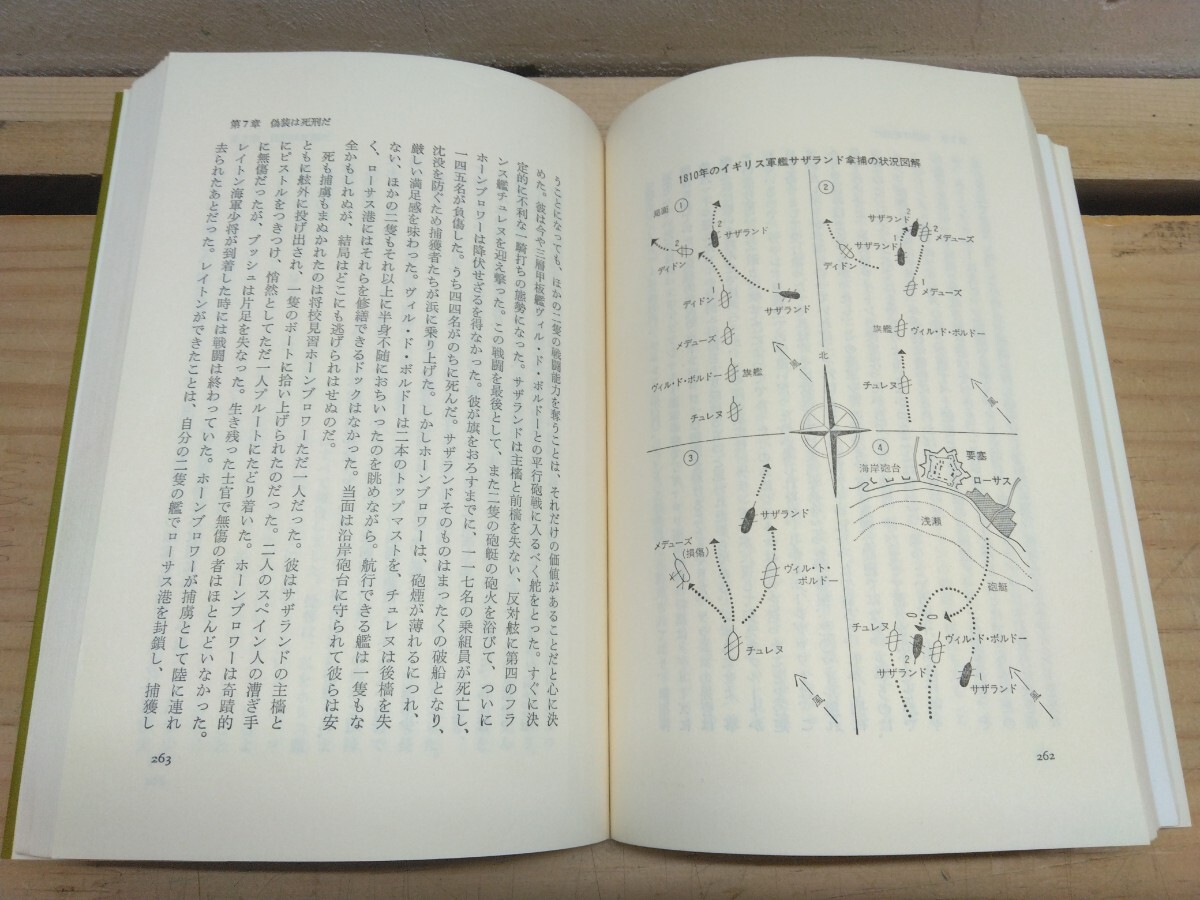 1810年のイギリス軍艦サザランド拿捕の状況図解
局面 ①
2
サザランド
2
ディドン
1
ディドン
1
サザランド
メデューズ
ヴィル・ド・ボルドー 旗艦
チュレヌ
風
北
②
サザランド
2
2
メデューズ
サザランド
1
ディドン
1
メデューズ
旗艦 ヴィル・ド・ボルドー
チュレヌ
風
③
サザランド
メデューズ
(損傷)
ヴィル・ド・
ボルドー
チュレヌ
風
④
海岸砲台
要塞
ローサス
浅瀬
砲艇
チュレヌ
ヴィル・ド・ボルドー
2
サザランド
1
サザランド
風
262
第7章 偽装は死刑だ
うことになっても、ほかの二隻の戦闘能力を奪うことは、それだけの価値があることだと心に決
めた。彼は今や三層甲板艦ヴィル・ド・ボルドーとの平行砲戦に入るべく舵をとった。すぐに決
定的に不利な一騎打ちの態勢になった。サザランドは主檣と前檣を失ない、反対舷に第四のフラ
ンス艦チュレヌを迎え撃った。この戦闘を最後として、また二隻の砲艇の砲火を浴びて、ついに
ホーンブロワーは降伏せざるを得なかった。彼が旗をおろすまでに、一一七名の乗組員が死亡し、
一四五名が負傷した。うち四四名がのちに死んだ。サザランドそのものはまったくの破船となり、
沈没を防ぐため捕獲者たちが浜に乗り上げた。しかしホーンブロワーは、砲煙が薄れるにつれ、
厳しい満足感を味わった。ヴィル・ド・ボルドーは二本のトップマストを、チュレヌは後檣を失
ない、ほかの二隻もそれ以上に半身不随におちいったのを眺めながら。航行できる艦は一隻もな
く、ローサス港にはそれらを修繕できるドックはなかった。当面は沿岸砲台に守られて彼らは安
全かもしれぬが、結局はどこにも逃げられはせぬのだ。
死も捕虜もまぬかれたのは将校見習ホーンブロワーただ一人だった。彼はサザランドの主檣と
ともに舷外に投げ出され、一隻のボートに拾い上げられたのだった。二人のスペイン人の漕ぎ手
にピストルをつきつけ、悄然としてただ一人プルートにたどり着いた。ホーンブロワーは奇蹟的
に無傷だったが、ブッシュは片足を失なった。生き残った士官で無傷の者はほとんどいなかった。
レイトン海軍少将が到着した時には戦闘は終わっていた。ホーンブロワーが捕虜として陸に連れ
去られたあとだった。レイトンができたことは、自分の二隻の艦でローサス港を封鎖し、捕獲し
263